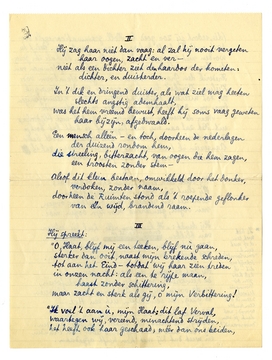 II
Hij zag haar niet dan vaag; al zal hij nooit vergeten
haar oogen, zacht en ver —
niet als een dichter ziet de haarbos der kometen,
dichter, en duisterder.
In 't dik en dringend duister, als wat ziel mag heeten
slechts angstig ademhaalt,
was het hem vreemd bewust, heeft hij soms vaag geweten
haar bijzijn, afgedwaald.
Een mensch alleen — en toch, doorheen de nederlagen
der duizend rondom hem,
die streeling, bitterzacht, van oogen die hem zagen,
een troosten zonder stem
Alsof dit klein bestaan, omwikkeld door het donker,
verdoken, zonder naam,
doorheen de Ruimten stond als 't roepende geflonker
van een wijd, brandend raam.
III
Hij spreekt:
"O, Haat, blijf mij een teeken, blijf mij gaan,
sterker dan ooit naast mijn brekende schreden,
tot aan het Eind — opdat wij haar zien treden
in onzen nacht: als een te rijpe maan,
haast zonder schittering,
maar zacht en sterk als gij, o mijn Verbittering!
"Ik voel 't aan u, mijn Haat; dit laf Verval,
waartegen wij, vereend, menachtend strijden,
het heeft ook haar geschaad; met dan ons beiden,